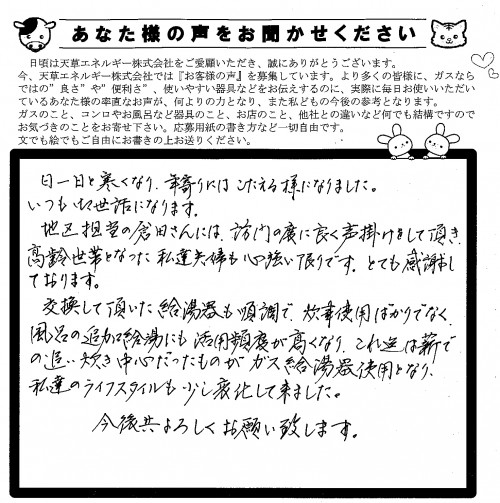 あなた様の声をお聞かせください
日頃は天草エネルギー株式会社をご愛顧いただき、誠にありがとうございます。
今、天草エネルギー株式会社では『お客様の声』を募集しています。より多くの皆様に、ガスなら
ではの”良さ”や”便利さ”、使いやすい器具などをお伝えするのに、実際に毎日お使いいただい
ているあなた様の率直なお声が、何よりの力となり、また私どもの今後の参考となります。
ガスのこと、コンロやお風呂など器具のこと、お店のこと、他社との違いなど何でも結構ですので
お気づきのことをお寄せ下さい。応募用紙の書き方など一切自由です。
文でも絵でもご自由にお書きの上お送りください。
日一日と寒くなり、年寄りにはこたえる様になりました。
いつもお世話になります。
地区担当の倉田さんには、訪門の度に良く声掛けをして頂き
高齢世帯となった私達夫婦も心強い限りです。とても感謝し
ております。
交換して頂いた給湯器も順調で、炊事使用ばかりでなく、
風呂の追加給湯にも活用頻度が高くなり、これ迄は薪で
の追い炊き中心だったものがガス給湯器使用となり、
私達のライフスタイルも少し変化して来ました。
今後共よろしくお願い致します。